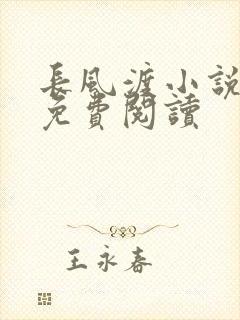 長風渡小說
免費閱讀
王永春